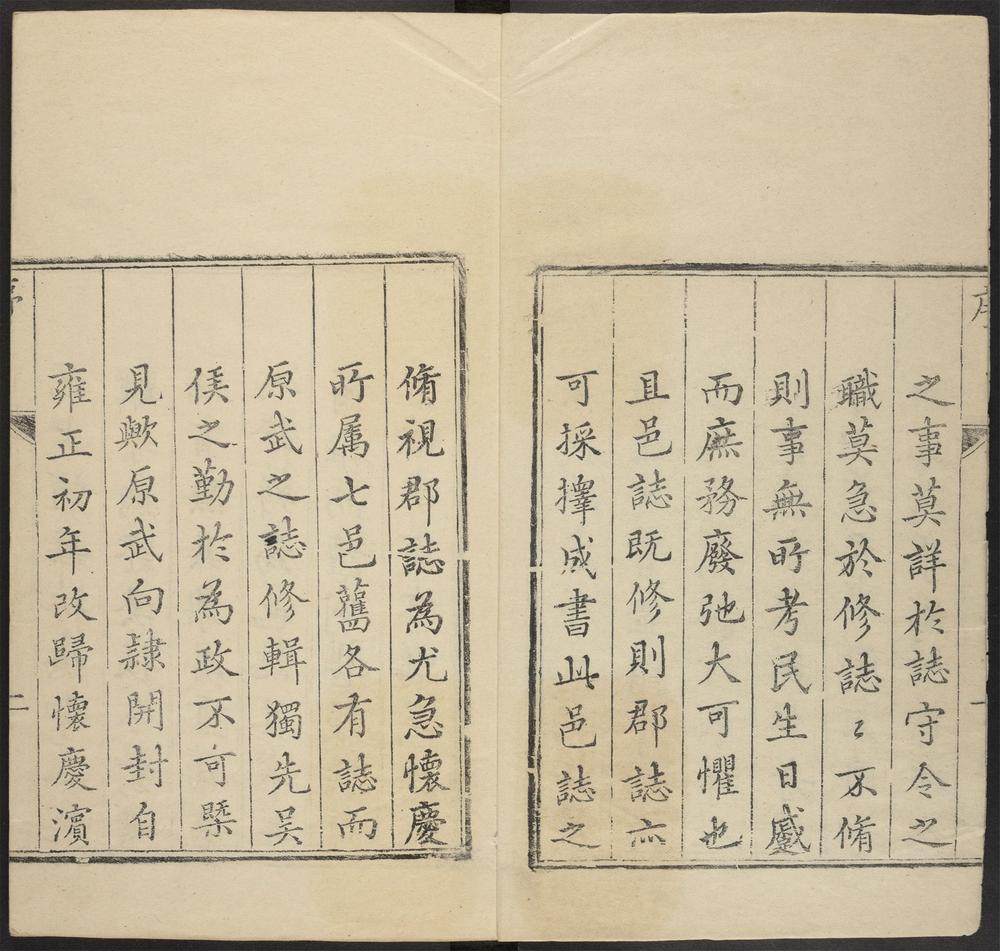 序
一
之事莫詳於誌守令之
職莫急於修誌〻不脩
則事無所考民生日蹙
而庶務廢弛大可懼也
且邑誌既修則郡誌亦
可採擇成書此邑誌之
脩視郡誌為尤急懷慶
所属七邑舊各有誌而
原武之誌修輯獨先吴
侯之勤於為政不可槩
見歟原武向隷開封自
雍正初年改歸懷慶濵
二